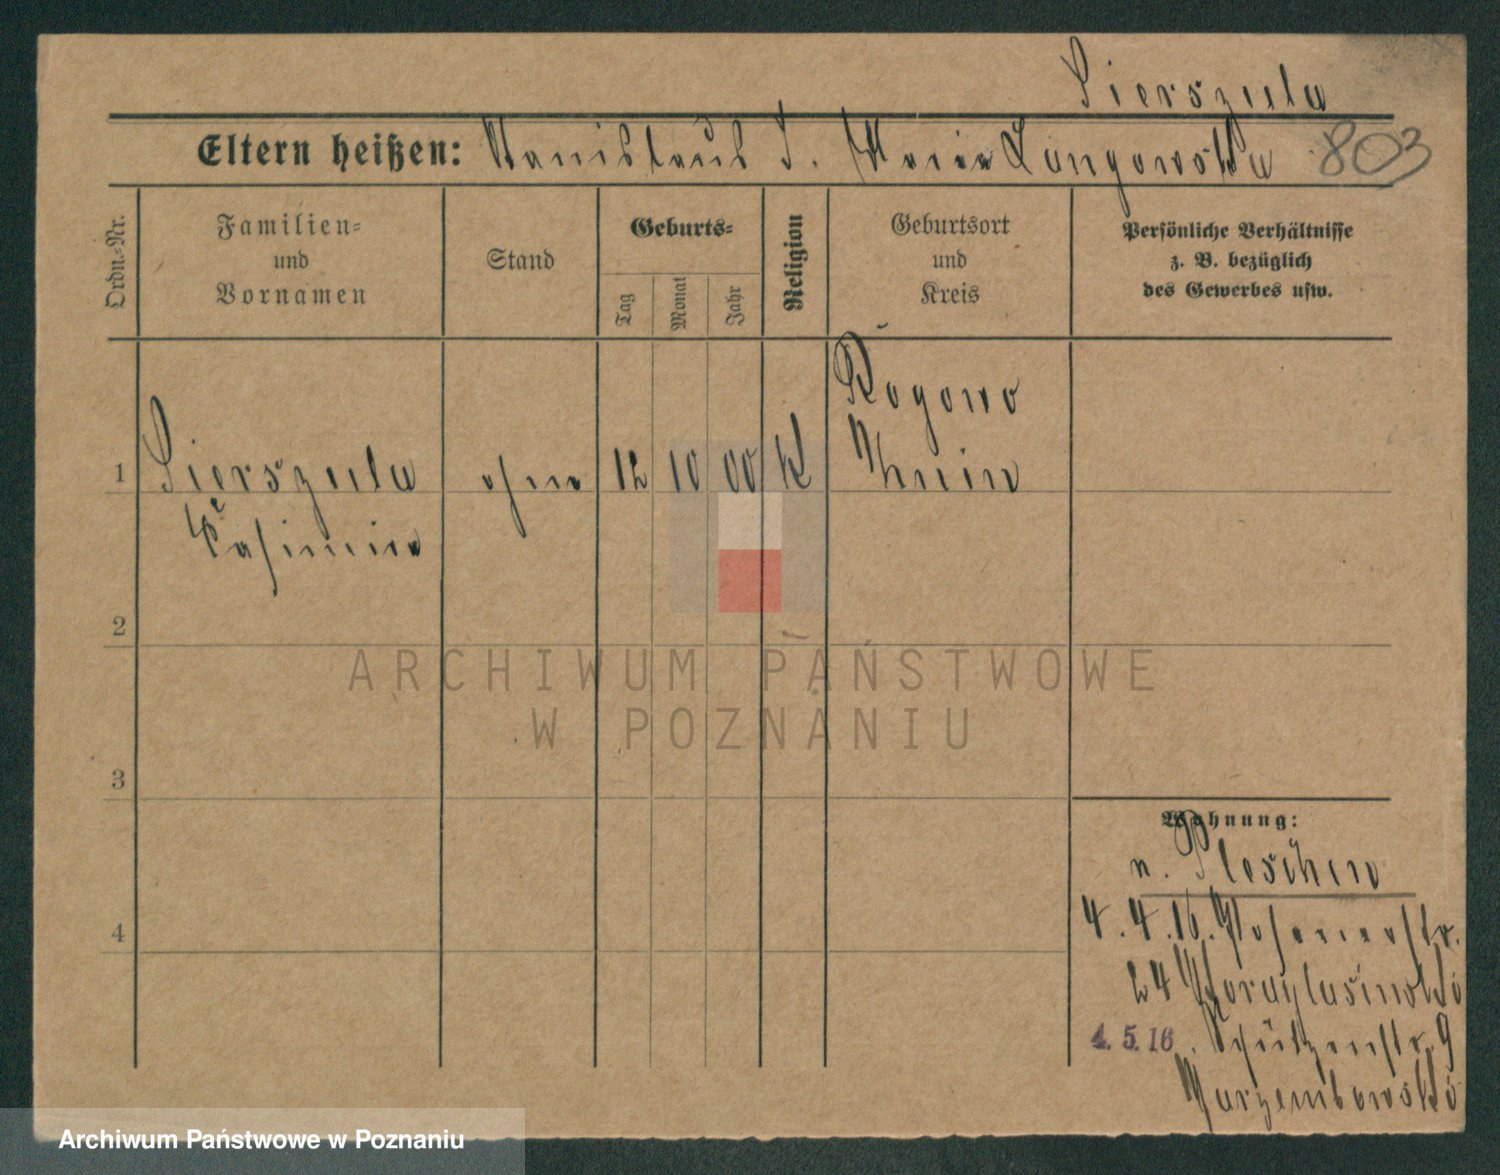 Sierszula
Eltern heißen: Stanislaus S. Maria Langowska 803
Ordn.-Nr.
Familien-
und
Vornamen
Stand
Geburts-
Tag
Monat
Jahr
Religion
Geburtsort
und
Kreis
Persönliche Verhältnisse
z. B. bezüglich
des Gewerbes usw.
Rogowo
1 Sierszula ohne 12 10 00 K Znin
Casimira
2
3
4
Wohnung:
n. Pleschen
4.4.16. Posenerstr.
24
4. 5. 16. Schützenstr. 9
ARCHIWUM PAŃSTWOWE
W POZNANIU
Archiwum Państwowe w Poznaniu